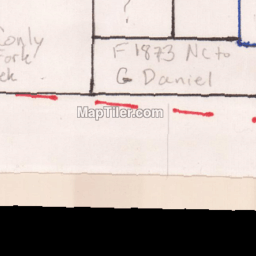 ?
only
Fork
F 1873 NC to
G Daniel
MapTiler.com